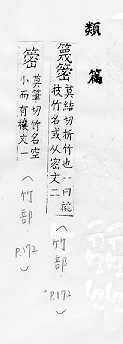 類篇
篾䈼
莫結切折竹也一曰桃
枝竹名或从密文二
(竹部 P.172)
䈼
莫筆切竹名空
小而有穰文一
(竹部 P.172)